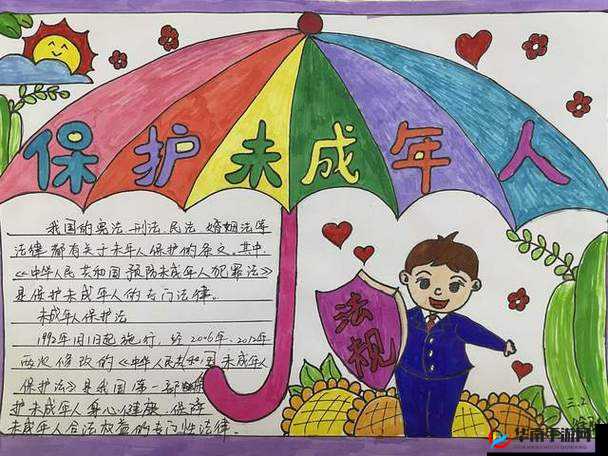 保护未成年人
我国的宪法、刑法、民法、婚姻法等
法律都有关于未年人保护的条文。其中
《中华人民共和国预防未成年人犯罪法》
是保护未成年人的专门法律。
未成年人保护法
1992年1月1日起施行，经2006年、2012年
两次修改的《中华人民共和国未成年人
保护法》是我国第一部
护未成年人身心健康、保障
未成年人合法权益的专门性法律。
法规
三.2
华南手游网